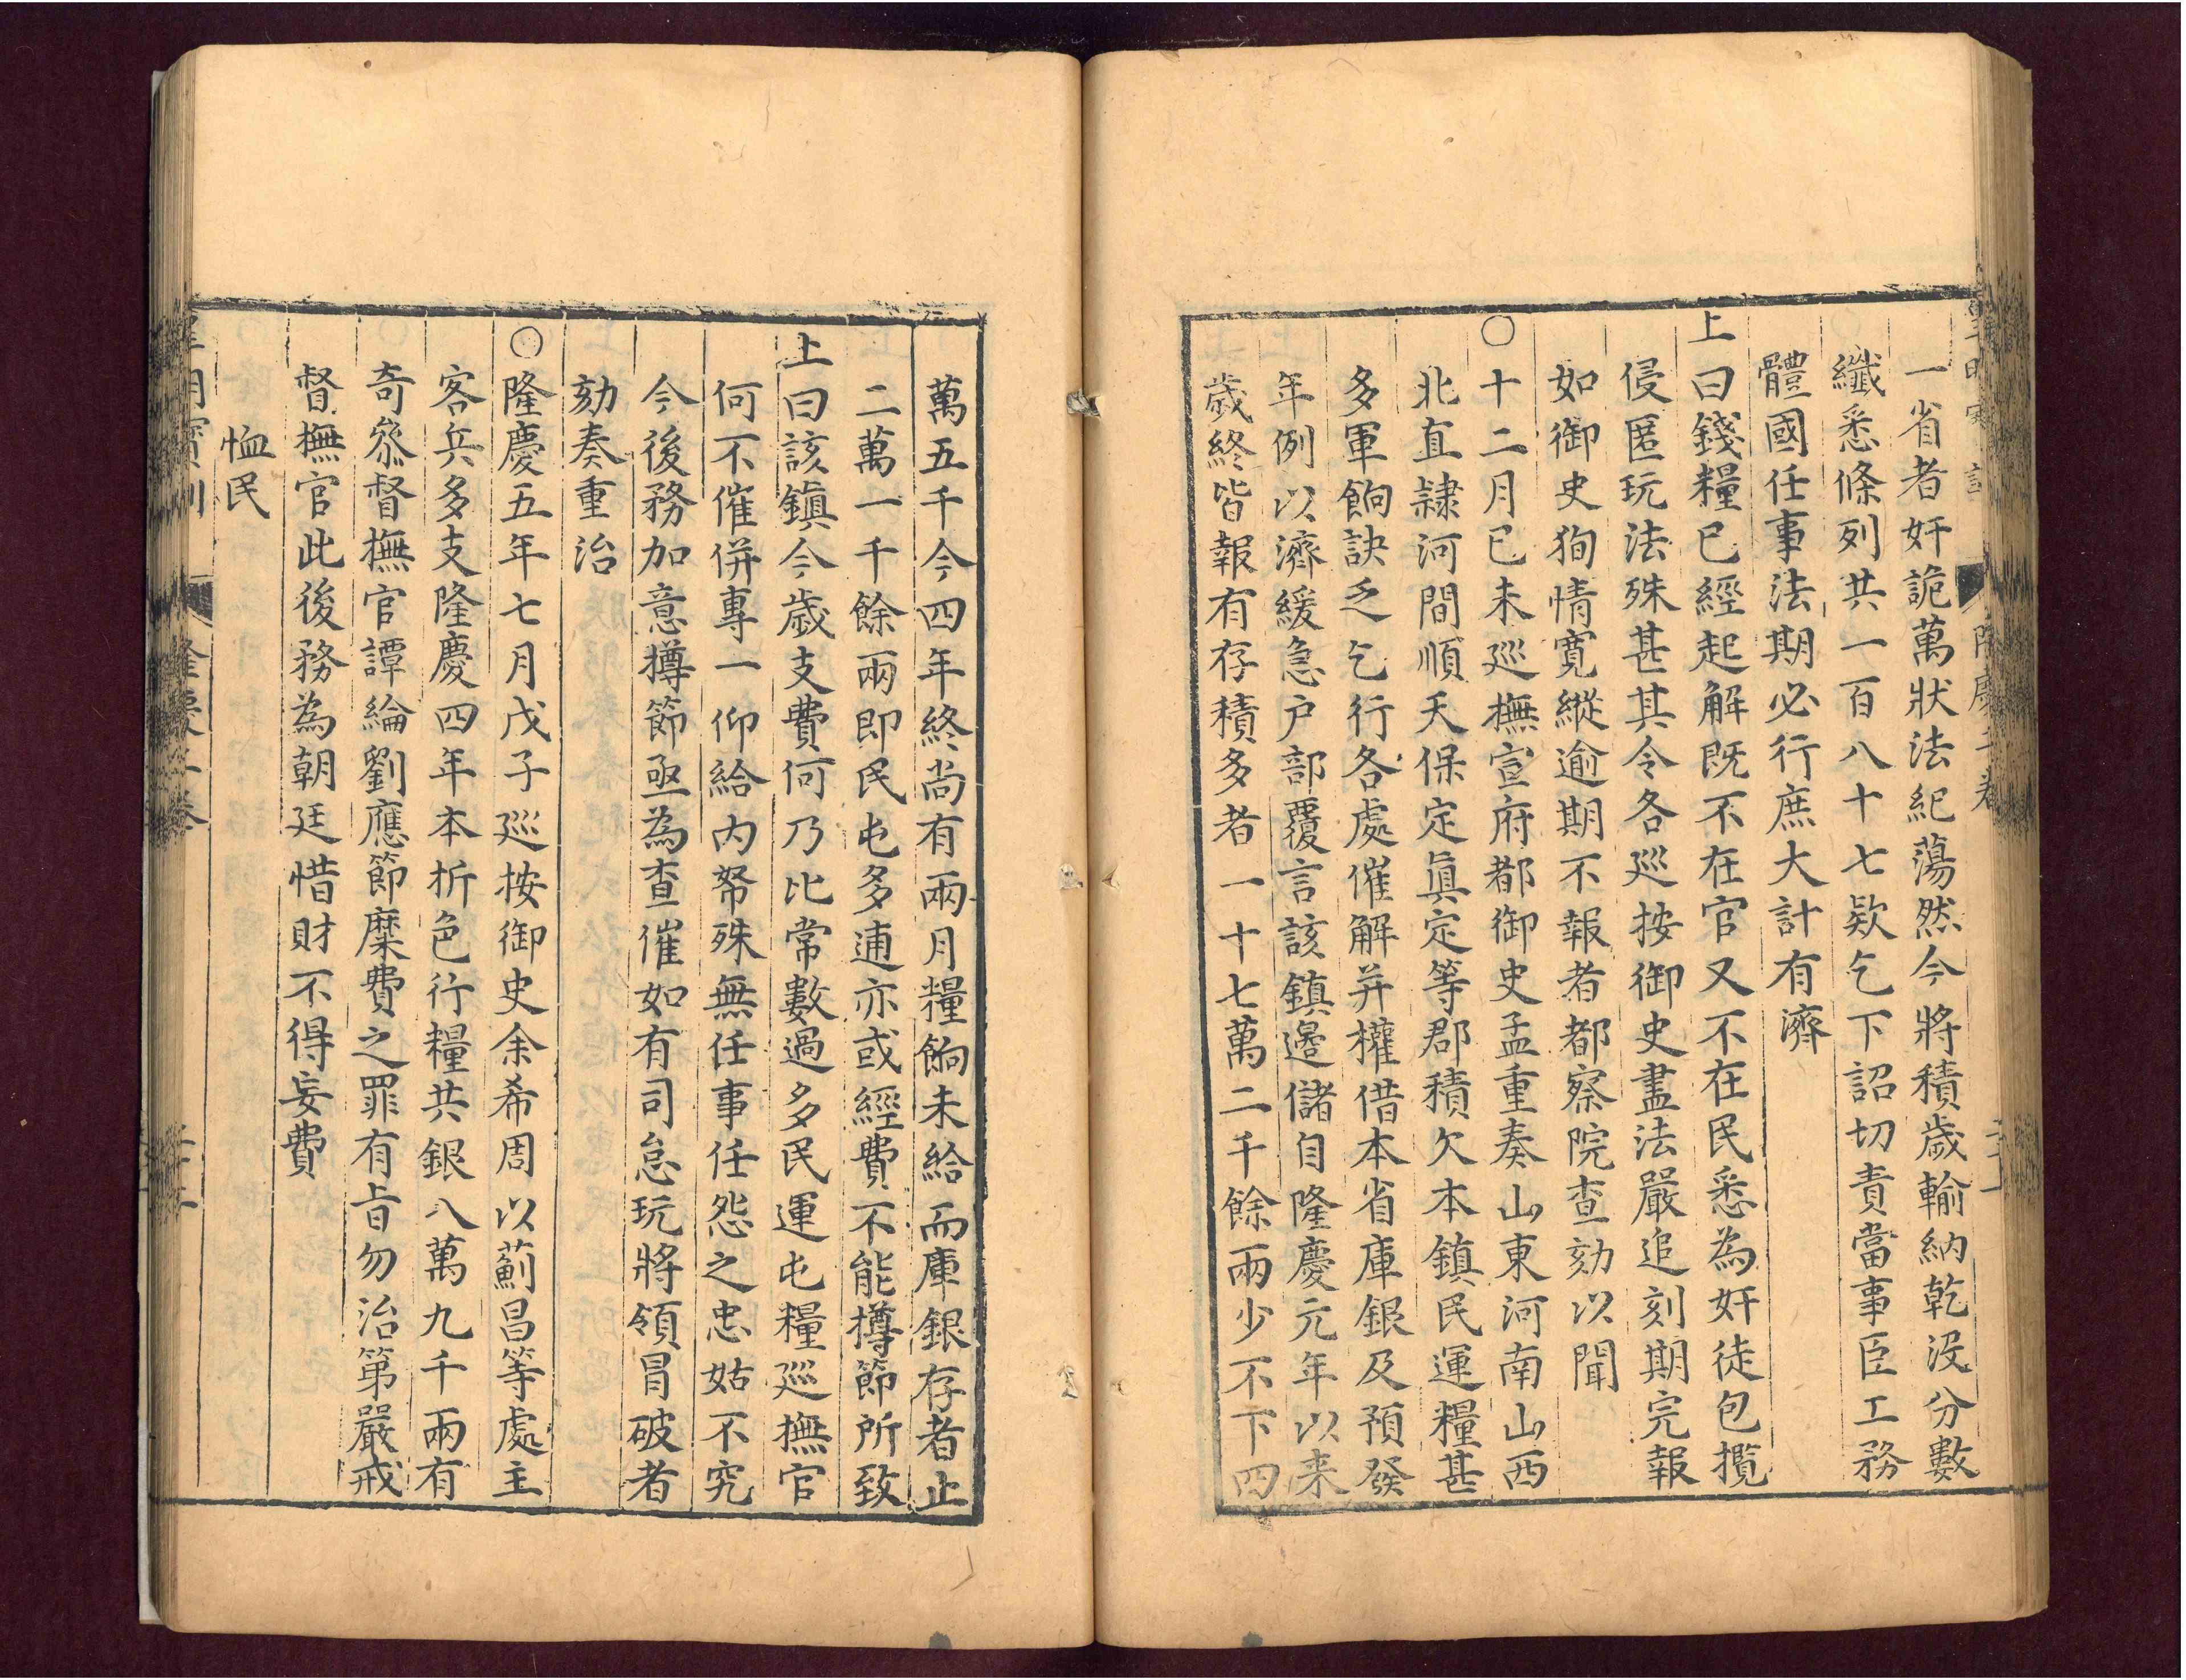 一省者奸詭萬狀法紀蕩然今將積歲輸納乾沒分數
纖悉條列共一百八十七欵乞下詔切責當事臣工務
體國任事法期必行庶大計有濟
上曰錢糧已經起解既不在官又不在民悉為奸徒包攬
侵匿玩法殊甚其令各巡按御史盡法嚴追刻期完報
如御史狥情寬縱逾期不報者都察院查劾以聞
○十二月已未巡撫宣府都御史孟重奏山東河南山西
北直隷河間順天保定真定等郡積欠本鎮民運糧甚
多軍餉訣乏乞行各處催解并權借本省庫銀及預發
年例以濟緩急户部覆言該鎮邊儲自隆慶元年以来
歲終皆報有存積多者一十七萬二千餘兩少不下四
萬五千今四年終尚有兩月糧餉未給而庫銀存者止
二萬一千餘兩即民屯多逋亦或經費不能撙節所致
上曰該鎮今歲支費何乃比常數過多民運屯糧巡撫官
何不催併專一仰給內帑殊無任事任怨之忠姑不究
今後務加意撙節亟為查催如有司怠玩將領冒破者
劾奏重治
○隆慶五年七月戊子巡按御史余希周以薊昌等處主
客兵多支隆慶四年本折色行糧共銀八萬九千兩有
奇叅督撫官譚綸劉應節糜費之罪有旨勿治第嚴戒
督撫官此後務為朝廷惜財不得妄費
恤民